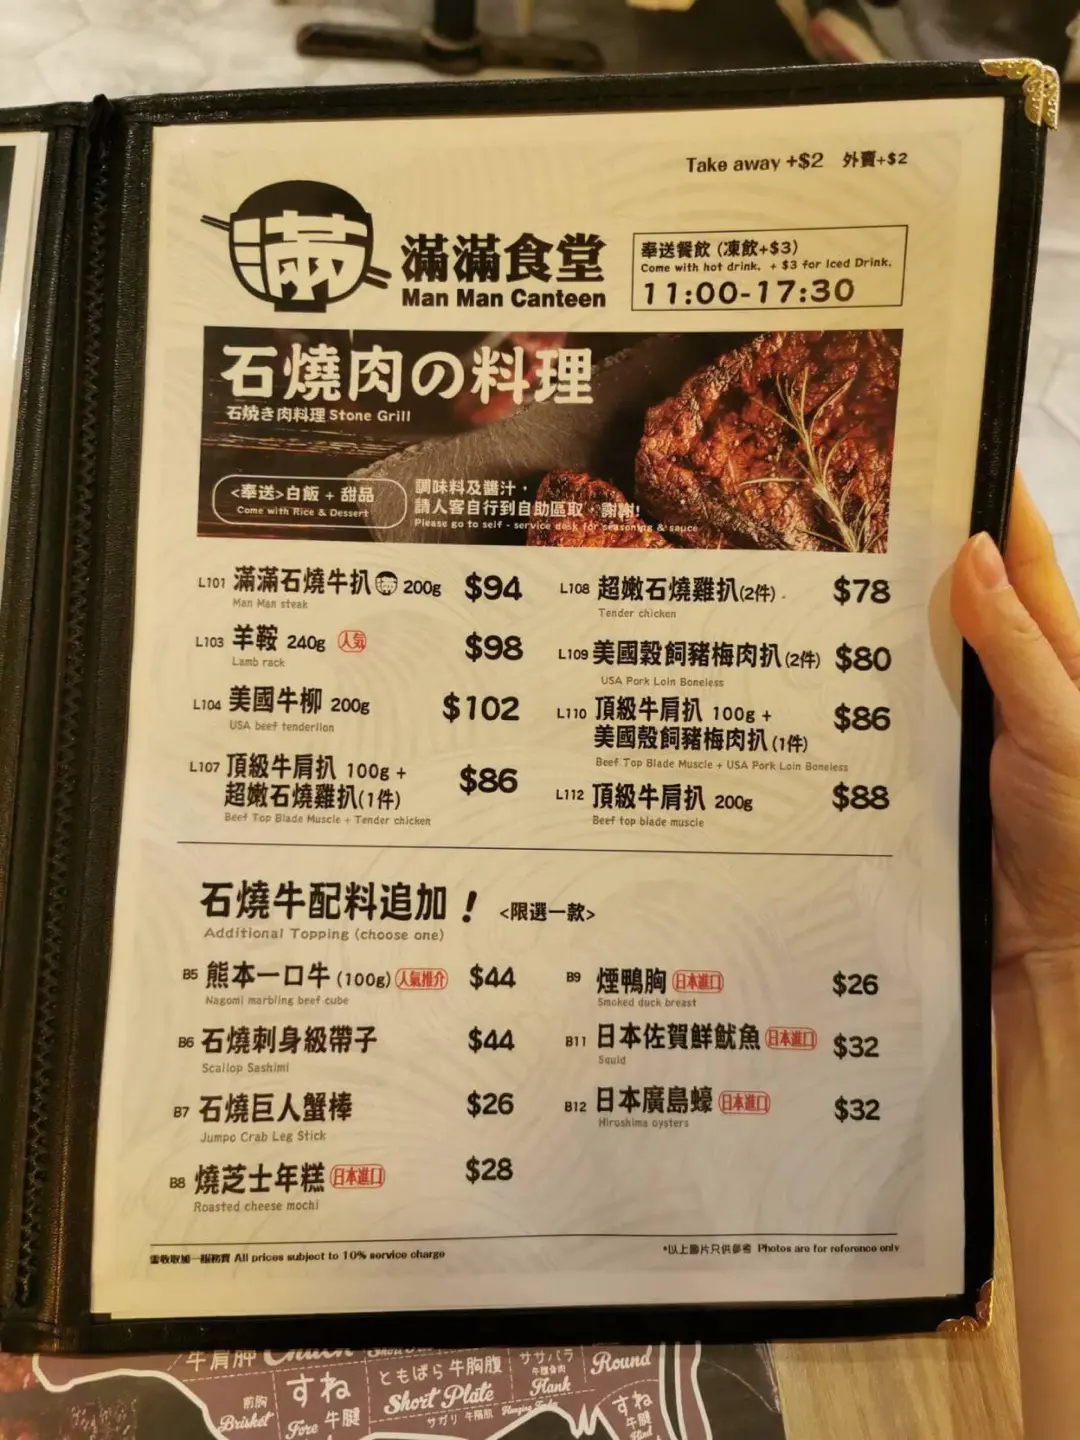 Take away +$2 外賣+$2
滿
滿滿食堂
Man Man Canteen
奉送餐飲 (凍飲+$3)
Come with hot drink, + $3 for Iced Drink.
11:00-17:30
石燒肉の料理
石焼き肉料理 Stone Grill
<奉送>白飯 + 甜品
Come with Rice & Dessert
調味料及醬汁，
請人客自行到自助區取，謝謝!
Please go to self - service desk for seasoning & sauce
L101 滿滿石燒牛扒 滿 200g $94
Man Man steak
L103 羊鞍 240g 人気 $98
Lamb rack
L104 美國牛柳 200g $102
USA beef tenderlion
L107 頂級牛肩扒 100g +
超嫩石燒雞扒(1件) $86
Beef Top Blade Muscle + Tender chicken
L108 超嫩石燒雞扒(2件) $78
Tender chicken
L109 美國穀飼豬梅肉扒 (2件) $80
USA Pork Loin Boneless
L110 頂級牛肩扒 100g +
美國穀飼豬梅肉扒 (1件) $86
Beef Top Blade Muscle + USA Pork Loin Boneless
L112 頂級牛肩扒 200g $88
Beef top blade muscle
石燒牛配料追加！ <限選一款>
Additional Topping (choose one)
B5 熊本一口牛 (100g) 人氣推介 $44
Nagomi marbling beef cube
B6 石燒刺身級帶子 $44
Scallop Sashimi
B7 石燒巨人蟹棒 $26
Jumpo Crab Leg Stick
B8 燒芝士年糕 日本進口 $28
Roasted cheese mochi
B9 煙鴨胸 日本進口 $26
Smoked duck breast
B11 日本佐賀鮮魷魚 日本進口 $32
Squid
B12 日本廣島蠔 日本進口 $32
Hiroshima oysters
需收取加一服務費 All prices subject to 10% service charge
*以上圖片只供參考 Photos are for reference only
牛肩胛 Chuck
前胸
Brisket
すね
Fore 牛腱
ともばら 牛胸腹
Short Plate
サガリ
ササバラ
Flank
Round
すね
牛腱